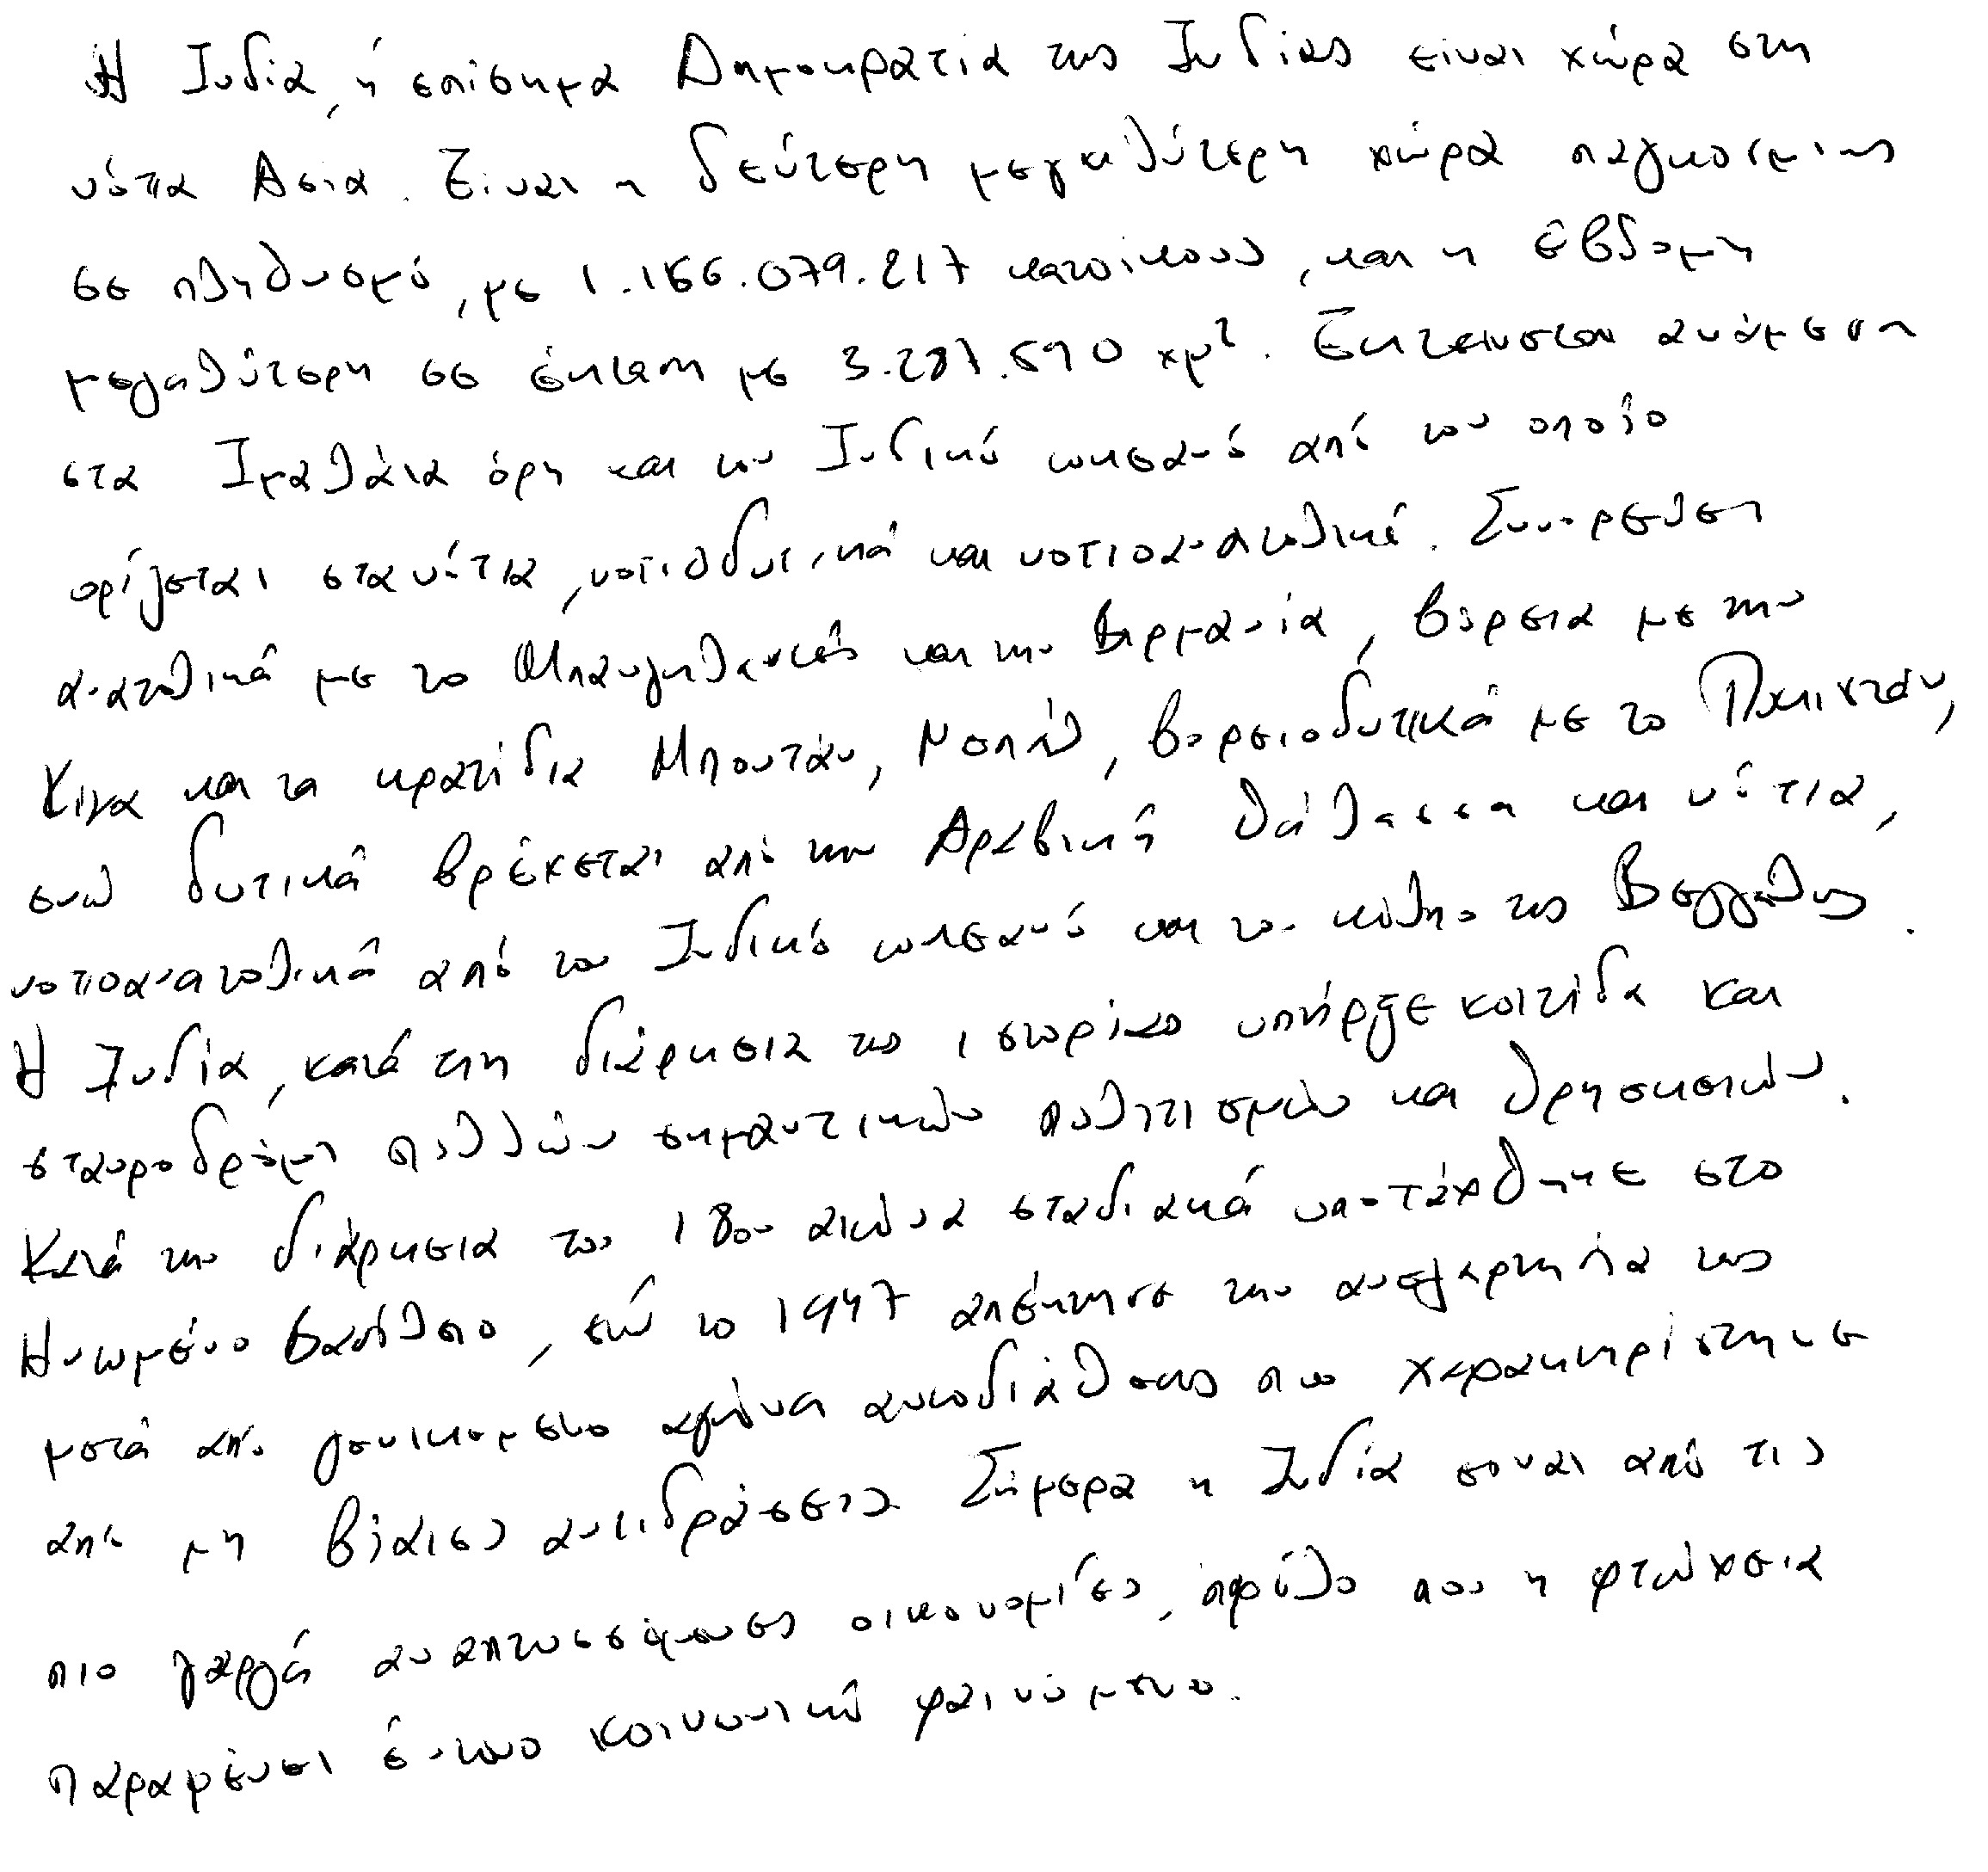 Η Ινδία, ή επίσημα Δημοκρατία της Ινδίας είναι χώρα στη
νότια Ασία. Είναι η δεύτερη μεγαλύτερη χώρα παγκοσμίως
σε πληθυσμό, με 1.166.079.217 κατοίκους, και η έβδομη
μεγαλύτερη σε έκταση με 3.287.590 χμ². Εκτείνεται ανάμεσα
στα Ιμαλάια όρη και τον Ινδικό ωκεανό από τον οποίο
ορίζεται στα νότια, νοτιοδυτικά και νοτιοανατολικά. Συνορεύει
ανατολικά με το Μπανγκλαντές και την Βιρμανία, βόρεια με την
Κίνα και τα κρατίδια Μπουτάν, Νεπάλ, βορειοδυτικά με το Πακιστάν,
ενώ δυτικά βρέχεται από την Αραβική θάλασσα και νότια,
νοτιοανατολικά από τον Ινδικό ωκεανό και τον κόλπο της Βεγγάλης.
Η Ινδία, κατά την διάρκεια της ιστορίας υπήρξε κοιτίδα και
σταυροδρόμι πολλών σημαντικών πολιτισμών και θρησκειών.
Κατά την διάρκεια του 18ου αιώνα σταδιακά υποτάχθηκε στο
Ηνωμένο Βασίλειο, ενώ το 1947 απέκτησε την ανεξαρτησία της
μετά από γενικευμένο αγώνα αυτοδιάθεσης που χαρακτηρίστηκε
από μη βίαιες αντιδράσεις. Σήμερα η Ινδία είναι από τις
πιο γοργά αναπτυσσόμενες οικονομίες, παρόλο που η φτώχεια
παραμένει έντονο κοινωνικό φαινόμενο.